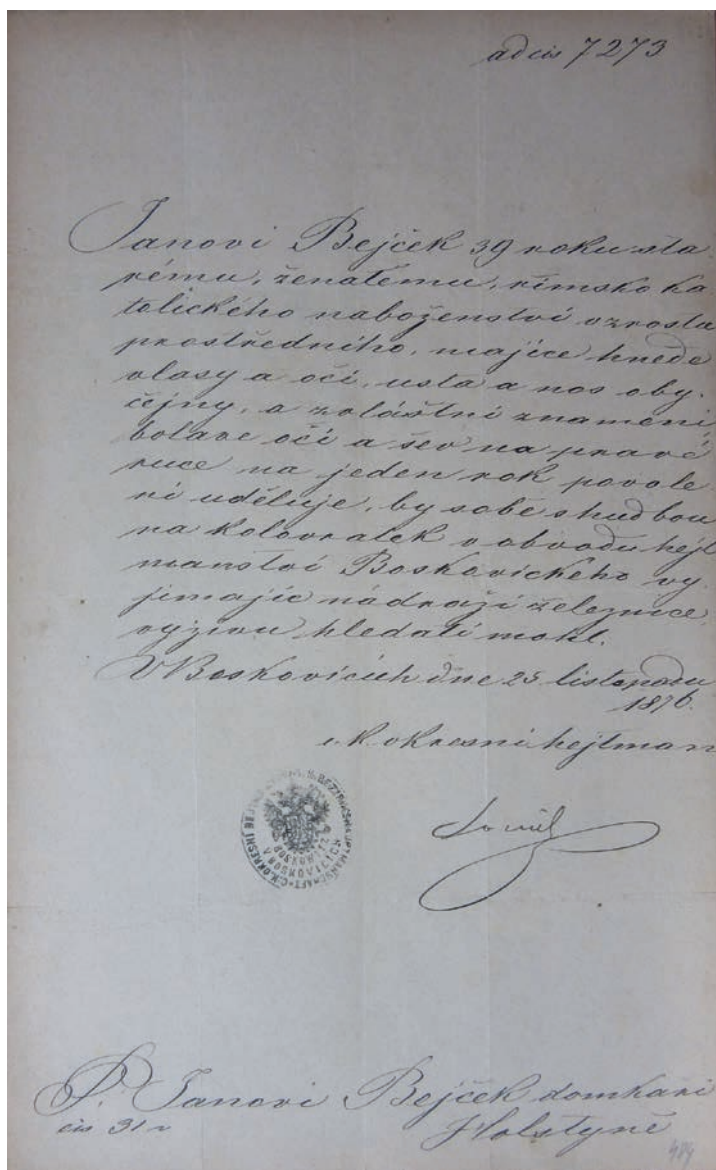 ad čís 7273
Janovi Bejček 39 roku sta
rému, ženatemu, římsko ka
tolického naboženství vzrostu
prostředního, majíce hnede
vlasy a oči, usta a nos oby.
čejny, a zvláštní znamení:
bolave oči a šev na pravé
ruce na jeden rok povole
ní uděluje, by sobě s hudbou
na kolovratek v obvodu hejt
manství Boskovického vy
jimajíc nádraží železnice,
vyživu hledati mohl.
V Boskovicích dne 25 listopadu
1876.
c. k. okresní hejtman
P. Janovi Bejček domkaři
čís 31 v Holstyně
484